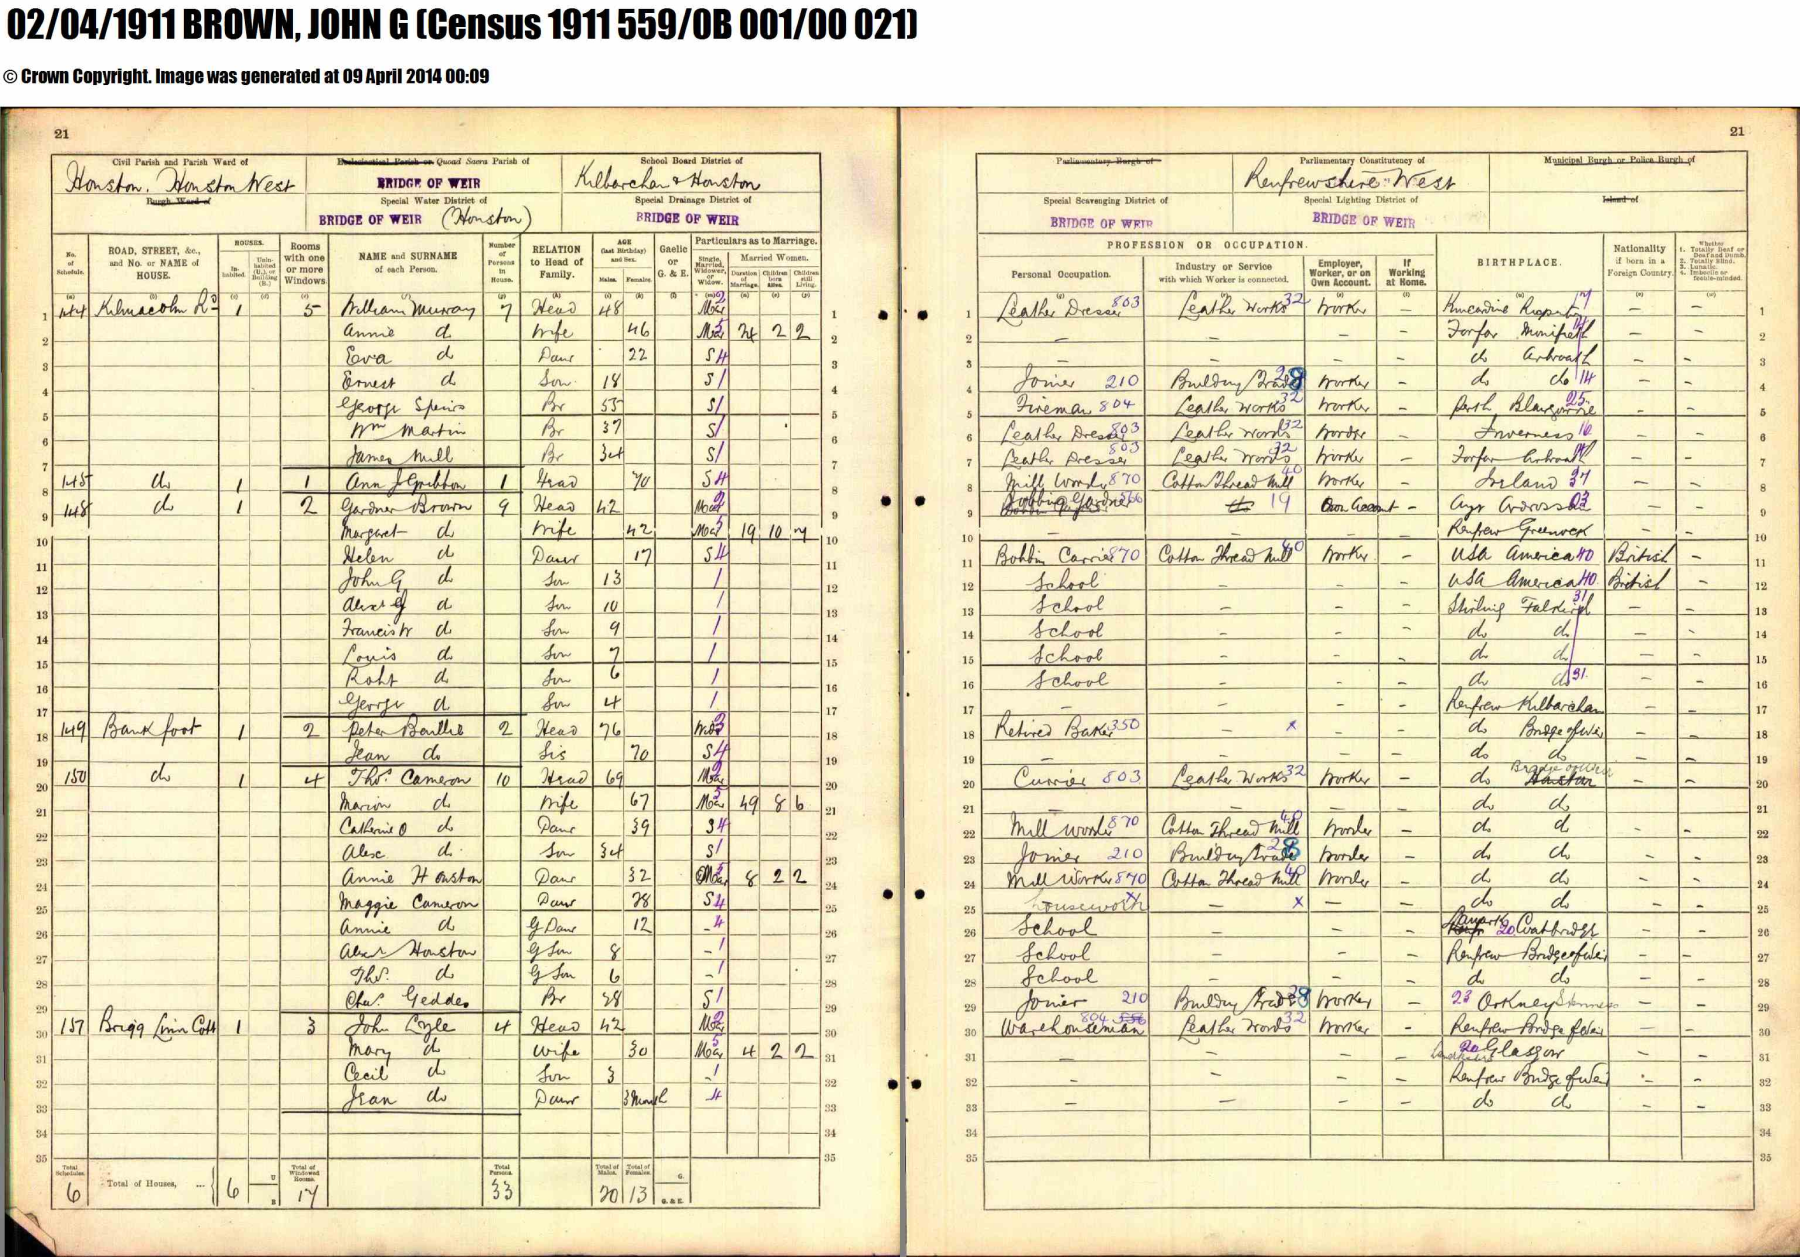 02/04/1911 BROWN, JOHN G (Census 1911 559/0B 001/00 021)
© Crown Copyright. Image was generated at 09 April 2014 00:09
21
21
Civil Parish and Parish Ward of
Houston. Houston West
Burgh Ward of
Ecclesiastical Parish or Quoad Sacra Parish of
BRIDGE OF WEIR
Special Water District of
BRIDGE OF WEIR (Houston)
School Board District of
Kilbarchan & Houston
Special Drainage District of
BRIDGE OF WEIR
Parliamentary Burgh of
Special Scavenging District of
BRIDGE OF WEIR
Parliamentary Constituency of
Renfrewshire West
Special Lighting District of
BRIDGE OF WEIR
Municipal Burgh or Police Burgh of
Island of
No. of Schedule.
ROAD, STREET, &c., and No. or NAME of HOUSE.
HOUSES.
Inhabited.
Uninhabited (U.), or Building (B.)
Rooms with one or more Windows.
NAME and SURNAME of each Person.
Number of Persons in House.
RELATION to Head of Family.
AGE (last Birthday) and Sex.
Males. Females.
Gaelic or G. & E.
Particulars as to Marriage.
Single, Married, Widower, or Widow.
Married Women.
Duration of Marriage. Children born Alive. Children still Living.
PROFESSION OR OCCUPATION.
Personal Occupation.
Industry or Service with which Worker is connected.
Employer, Worker, or on Own Account.
If Working at Home.
BIRTHPLACE.
Nationality if born in a Foreign Country.
Whether 1. Totally Deaf or Deaf and Dumb. 2. Totally Blind. 3. Lunatic. 4. Imbecile or feeble-minded.
1 144 Kilmacolm Rd 1 5 William Murray 7 Head 48 Mar Leather Dresser 803 Leather Works 32 Worker – Kincardine – –
2 Annie do Wife 46 Mar 24 2 2 – – – – Forfar Monifieth – –
3 Eva do Daur 22 S 4 – – – – do Arbroath – –
4 Ernest do Son 18 S 1 Joiner 210 Building Trade 28 Worker – do do 14 – –
5 George Speirs Br 55 S 1 Fireman 804 Leather Works 32 Worker – Perth Blairgowrie 25 – –
6 Wm Martin Br 37 S 1 Leather Dresser 803 Leather Works 32 Worker – Inverness 16 – –
7 James Mill Br 34 S 1 Leather Dresser 803 Leather Works 32 Worker – Forfar Arbroath – –
8 145 do 1 1 Ann J Gribbon 1 Head 70 S 4 Mill Worker 870 Cotton Thread Mill 40 Worker – Ireland 37 – –
9 148 do 1 2 Gardner Brown 9 Head 42 Mar Jobbing Gardner 19 Own Account – Ayr Ardrossan – –
10 Margaret do Wife 42 Mar 19 10 7 – Renfrew Greenock
11 Helen do Daur 17 S 4 Bobbin Carrier 870 Cotton Thread Mill 40 Worker – USA America 40 British –
12 John G do Son 13 1 School – – – USA America 40 British –
13 Alexr G do Son 10 1 School – – – Stirling Falkirk 31 – –
14 Francis W do Son 9 1 School – – – do do – –
15 Louis do Son 7 1 School – – – do do – –
16 Robt do Son 6 1 School – – – do do 31 – –
17 George do Son 4 1 – – – – Renfrew Kilbarchan – –
18 149 Bankfoot 1 2 Peter Baillie 2 Head 76 Wid 3 Retired Baker 350 x – – do Bridge of Weir – –
19 Jean do Sis 70 S 4 – – – – do do – –
20 150 do 1 4 Thos. Cameron 10 Head 69 Mar Currier 803 Leather Works 32 Worker – do Bridge of Weir – –
21 Marion do Wife 67 Mar 49 8 6 – – – – do do – –
22 Catherine O do Daur 39 S 4 Mill Worker 870 Cotton Thread Mill 40 Worker – do do – –
23 Alex. do Son 34 S 1 Joiner 210 Building Trade 28 Worker – do do – –
24 Annie Houston Daur 32 Mar 8 2 2 Mill Worker 870 Cotton Thread Mill 40 Worker – do do – –
25 Maggie Cameron Daur 28 S 4 Housework – x – – do do – –
26 Annie do G Daur 12 – 4 School – – – Lanark 20 Coatbridge – –
27 Alexr Houston G Son 8 – 1 School – – – Renfrew Bridge of Weir – –
28 Thos. do G Son 6 – 1 School – – – do do – –
29 Chas. Geddes Br 28 S 1 Joiner 210 Building Trade 28 Worker – 23 Orkney Stenness – –
30 151 Brigg Linn Cott 1 3 John Lyle 4 Head 42 Mar Warehouseman 804 Leather Works 32 Worker – Renfrew Bridge of Weir – –
31 Mary do Wife 30 Mar 4 2 2 – – – – 20 Glasgow – –
32 Cecil do Son 3 – 1 – – – – Renfrew Bridge of Weir – –
33 Jean do Daur 3 Month 4 – – – – do do – –
34
35
Total Schedules. 6
Total of Houses, ... 6 U B
Total of Windowed Rooms. 17
Total Persons. 33
Total of Males. 20
Total of Females. 13
G.
G. & E.